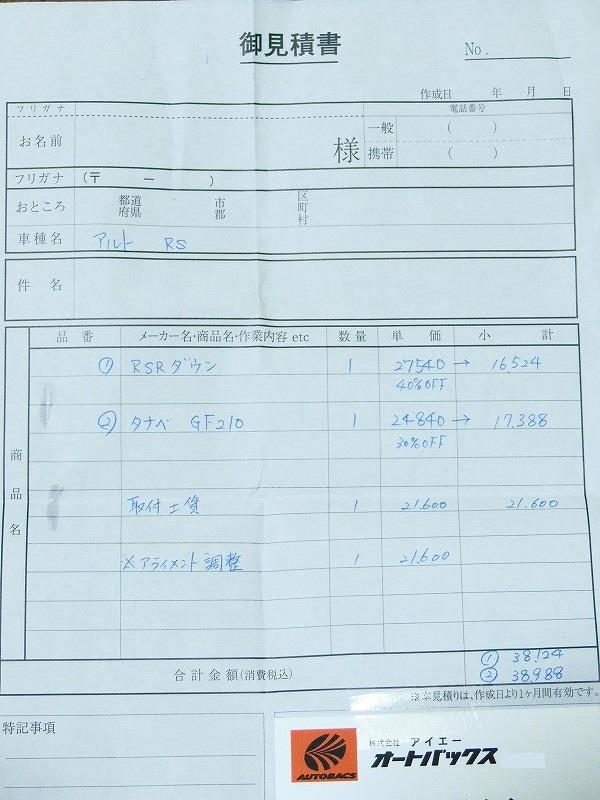 御見積書
No.
作成日 年 月 日
フリガナ 電話番号
お名前 様 一般 ( )
携帯 ( )
フリガナ (〒 － )
おところ 都道府県 市郡 区町村
車種名 アルト RS
件名
品番 メーカー名・商品名・作業内容 etc 数量 単価 小計
① RSRダウン 1 27540 → 16,524
40%OFF
② タナベ GF210 1 24840 → 17.388
30%OFF
商品名
取付工賃 1 21.600 21.600
※アライメント調整 1 21.600
合計金額(消費税込) ① 38.124
② 38988
※本見積りは、作成日より1ヶ月間有効です。
特記事項
株式会社 アイエー
オートバックス
AUTOBACS